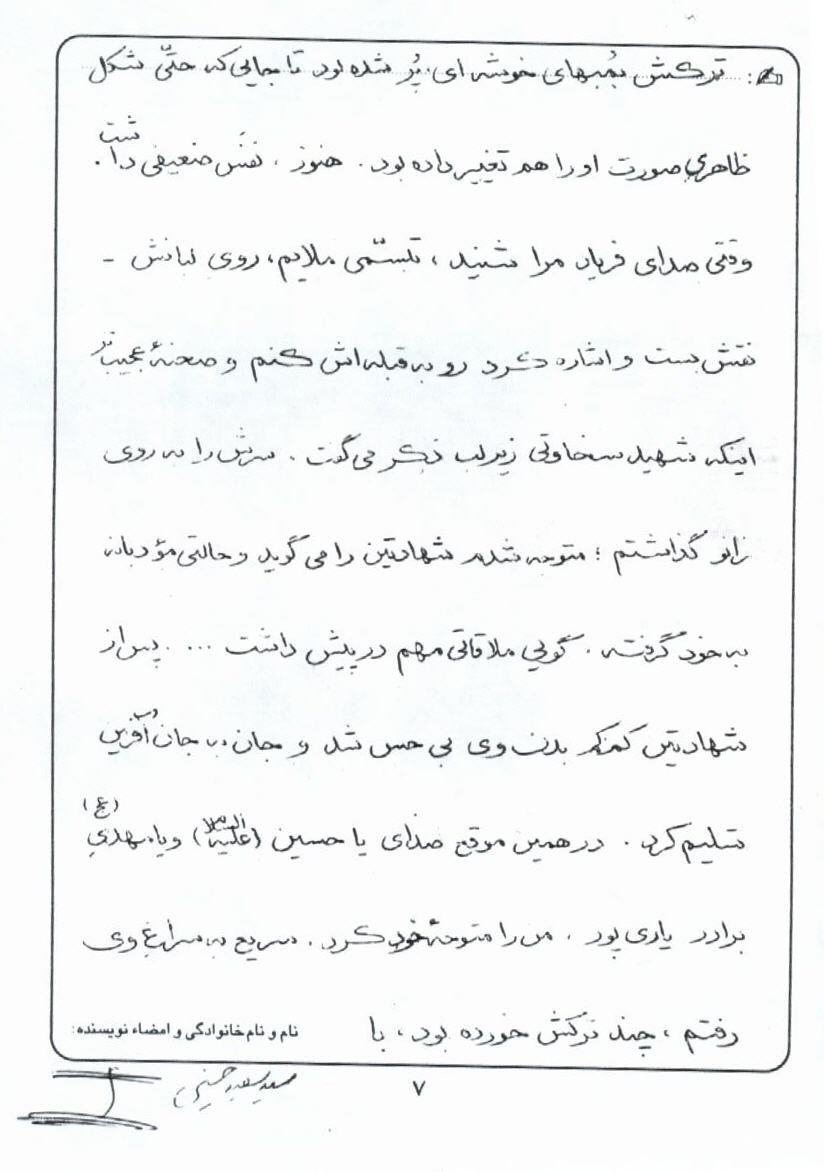 ترکش بمبهای خوشه ای پُر شده بود تا جایی که حتّی شکل
ظاهری صورت او را هم تغییر داده بود. هنوز، نفَس ضعیفی داشت.
وقتی صدای فریاد مرا شنید، تبسّمی ملایم، روی لبانش -
نقش بست و اشاره کرد رو به قبله اش کنم و صحنهٔ عجیب تر
اینکه شهید سخاوتی زیر لب ذکر می گفت. سرش را به روی
زانو گذاشتم؛ متوجه شدم شهادتین را می گوید و حالتی مؤدبانه
به خود گرفته. گویی ملاقاتی مهم در پیش داشت .... پس از
شهادتین کم کم بدن وی بی حس شد و جان به جان آفرین
تسلیم کرد. در همین موقع صدای یا حسین (علیه السلام) و یا مهدیِ (عج)
برادر یاری پور. من را متوجهٔ خود کرد. سریع به سراغ وی
رفتم، چند ترکش خورده بود، با
نام و نام خانوادگی و امضاء نویسنده:
۷